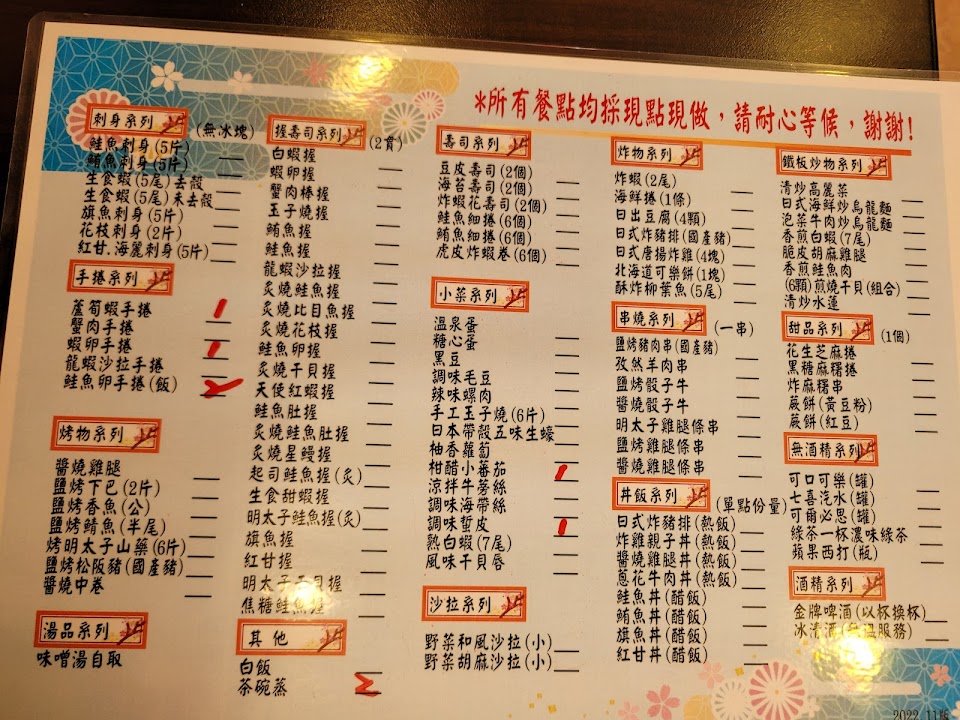 *所有餐點均採現點現做，請耐心等候，謝謝!
刺身系列 (無冰塊)
鮭魚刺身(5片)
鮪魚刺身(5片)
生食蝦(5尾)去殼
生食蝦(5尾)未去殼
旗魚刺身(5片)
花枝刺身(2片)
紅甘.海麗刺身(5片)
手捲系列
蘆筍蝦手捲 1
蟹肉手捲
蝦卵手捲 1
龍蝦沙拉手捲
鮭魚卵手捲(飯) 2
烤物系列
醬燒雞腿
鹽烤下巴(2片)
鹽烤香魚(公)
鹽烤鯖魚(半尾)
烤明太子山藥(6片)
鹽烤松阪豬(國產豬)
醬燒中卷
湯品系列
味噌湯自取
握壽司系列 (2貫)
白蝦握
蝦卵握
蟹肉棒握
玉子燒握
鮪魚握
鮭魚握
龍蝦沙拉握
炙燒鮭魚握
炙燒比目魚握
炙燒花枝握
鮭魚卵握
炙燒干貝握
天使紅蝦握
鮭魚肚握
炙燒鮭魚肚握
炙燒星鰻握
起司鮭魚握(炙)
生食甜蝦握
明太子鮭魚握(炙)
旗魚握
紅甘握
明太子干貝握
焦糖鮭魚握
其他
白飯
茶碗蒸 3
壽司系列
豆皮壽司(2個)
海苔壽司(2個)
炸蝦花壽司(2個)
鮭魚細捲(6個)
鮪魚細捲(6個)
虎皮炸蝦卷(6個)
小菜系列
溫泉蛋
糖心蛋
黑豆
調味毛豆
辣味螺肉
手工玉子燒(6片)
日本帶殼五味生蠔
柚香蘿蔔
柑醋小蕃茄 1
涼拌牛蒡絲
調味海帶絲
調味蜇皮 1
熟白蝦(7尾)
風味干貝唇
沙拉系列
野菜和風沙拉(小)
野菜胡麻沙拉(小)
炸物系列
炸蝦(2尾)
海鮮捲(1條)
日出豆腐(4顆)
日式炸豬排(國產豬)
日式唐揚炸雞(4塊)
北海道可樂餅(1塊)
酥炸柳葉魚(5尾)
串燒系列 (一串)
鹽烤豬肉串(國產豬)
孜然羊肉串
鹽烤骰子牛
醬燒骰子牛
明太子雞腿條串
鹽烤雞腿條串
醬燒雞腿條串
丼飯系列 (單點份量)
日式炸豬排(熱飯)
炸雞親子丼(熱飯)
醬燒雞腿丼(熱飯)
蔥花牛肉丼(熱飯)
鮭魚丼(醋飯)
鮪魚丼(醋飯)
旗魚丼(醋飯)
紅甘丼(醋飯)
鐵板炒物系列
清炒高麗菜
日式海鮮炒烏龍麵
泡菜牛肉炒烏龍麵
香煎白蝦(7尾)
脆皮胡麻雞腿
香煎鮭魚肉
(6顆)煎燒干貝(組合)
清炒水蓮
甜品系列 (1個)
花生芝麻捲
黑糖麻糬捲
炸麻糬串
蕨餅(黃豆粉)
蕨餅(紅豆)
無酒精系列
可口可樂(罐)
七喜汽水(罐)
可爾必思(罐)
綠茶一杯濃味綠茶
蘋果西打(瓶)
酒精系列
金牌啤酒(以杯換杯)
冰清酒(無溫服務)
2022.11版